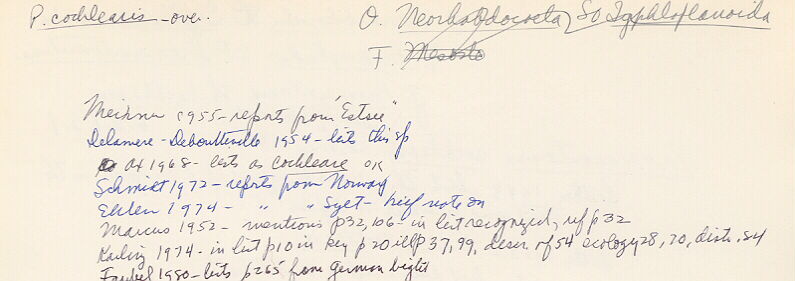 P. cochlearis - over.
O. Neorhabdocoela So Typhloplanoida
F.
Meixner 1955 - reports from "Estsee"
Delamere-Deboutteville 1954 - lists this sp
Ax 1968 - lists as cochleare OK
Schmidt 1972 - reports from Norway
Ehlers 1974 - " " Sylt - brief note on
Marcus 1952 - mentions p32, 106 - in list recognized, ref p 32
Karling 1974 - in list p10 in key p 20 ill p 37, 99, descr. p 54 ecology 28, 70, distr. 84
Faubel 1980 - lists p265 from German bight